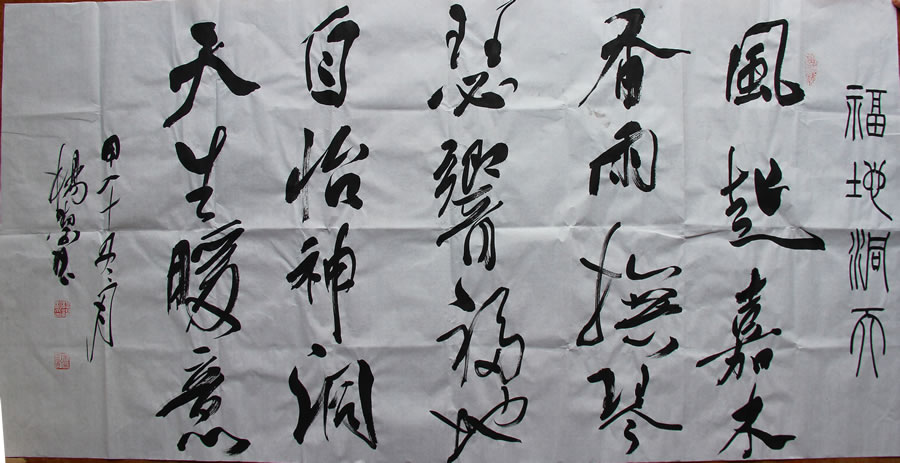 福地洞天
風起嘉木
香雨撫琴
瑟響福地
自怡神洞
天生暖意
甲午十月
楊